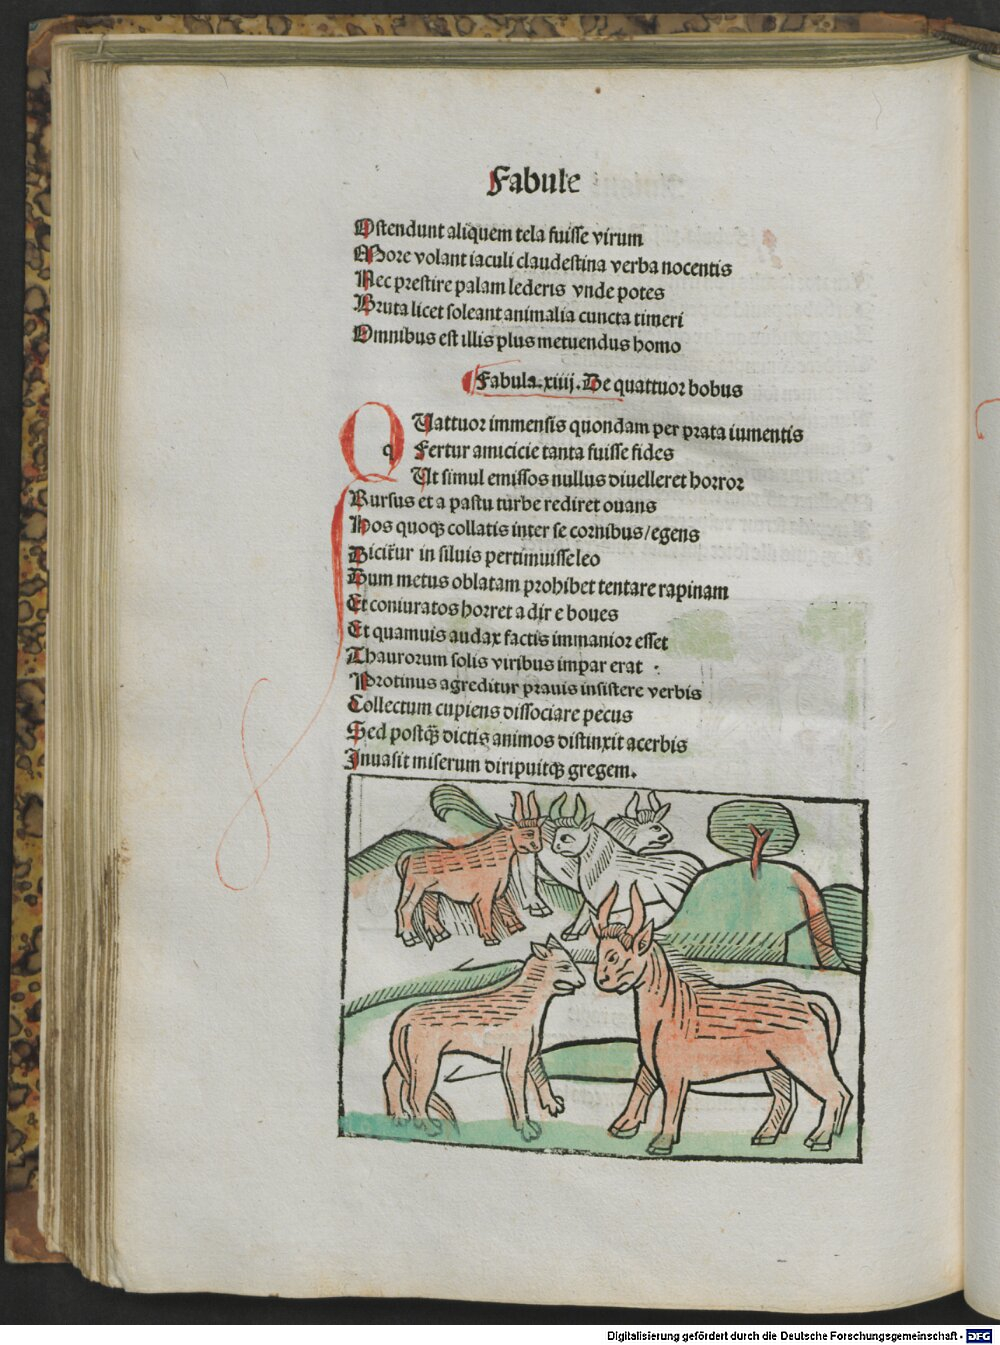 Fabule
Ostendunt aliquem tela fuisse virum
More volant iaculi claudestina verba nocentis
Nec prestire palam lederis vnde potes
Bruta licet soleant animalia cuncta timeri
Omnibus est illis plus metuendus homo
Fabula .xiiij. De quattuor bobus
q Uattuor immensis quondam per prata iumentis
Fertur amicicie tanta fuisse fides
Ut simul emissos nullus diuelleret horror
Rursus et a pastu turbe rediret ouans
Hos quoqꝫ collatis inter se cornibus/egens
Dicit̃ur in siluis pertimuisse leo
Dum metus oblatam prohibet tentare rapinam
Et coniuratos horret adir e boues
Et quamuis audax factis immanior esset
Thaurorum solis viribus impar erat
Protinus agreditur prauis insistere verbis
Collectum cupiens dissociare pecus
Sed postq̃ꝫ dictis animos distinxit acerbis
Inuasit miserum diripuitqꝫ gregem.
Digitalisierung gefördert durch die Deutsche Forschungsgemeinschaft - DFG